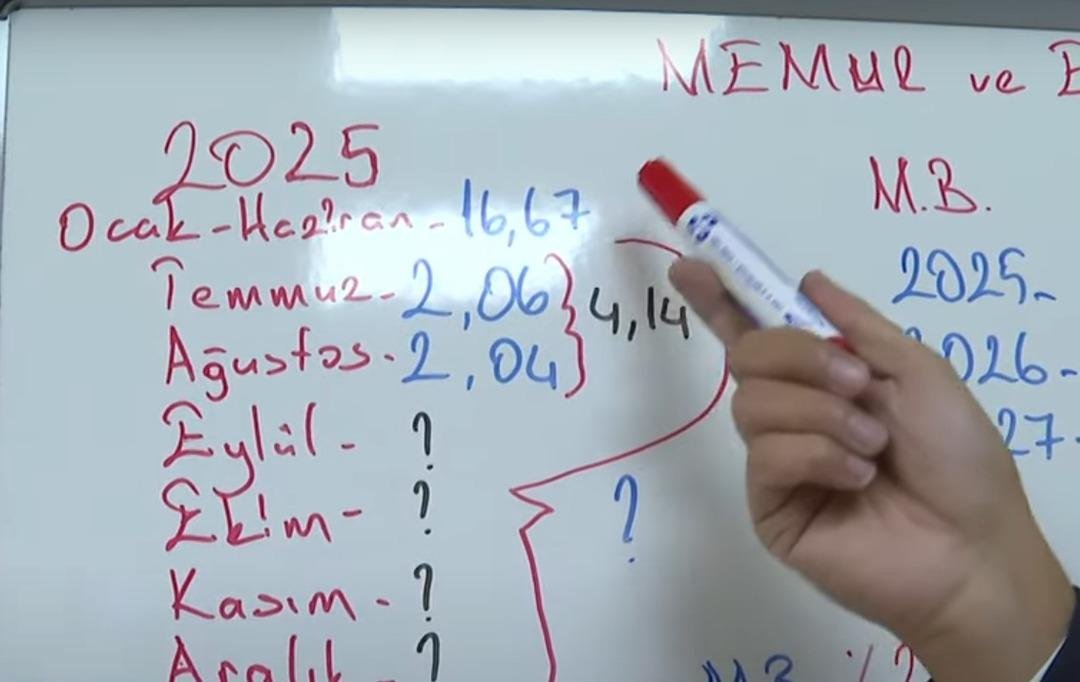 MEMUR ve E
2025
Ocak-Haziran-16,67
Temmuz-2,06
Ağustos-2,04
4,14
Eylül-?
Ekim-?
Kasım-?
Aralık ?
?
M.B.
2025-
2026-
27-